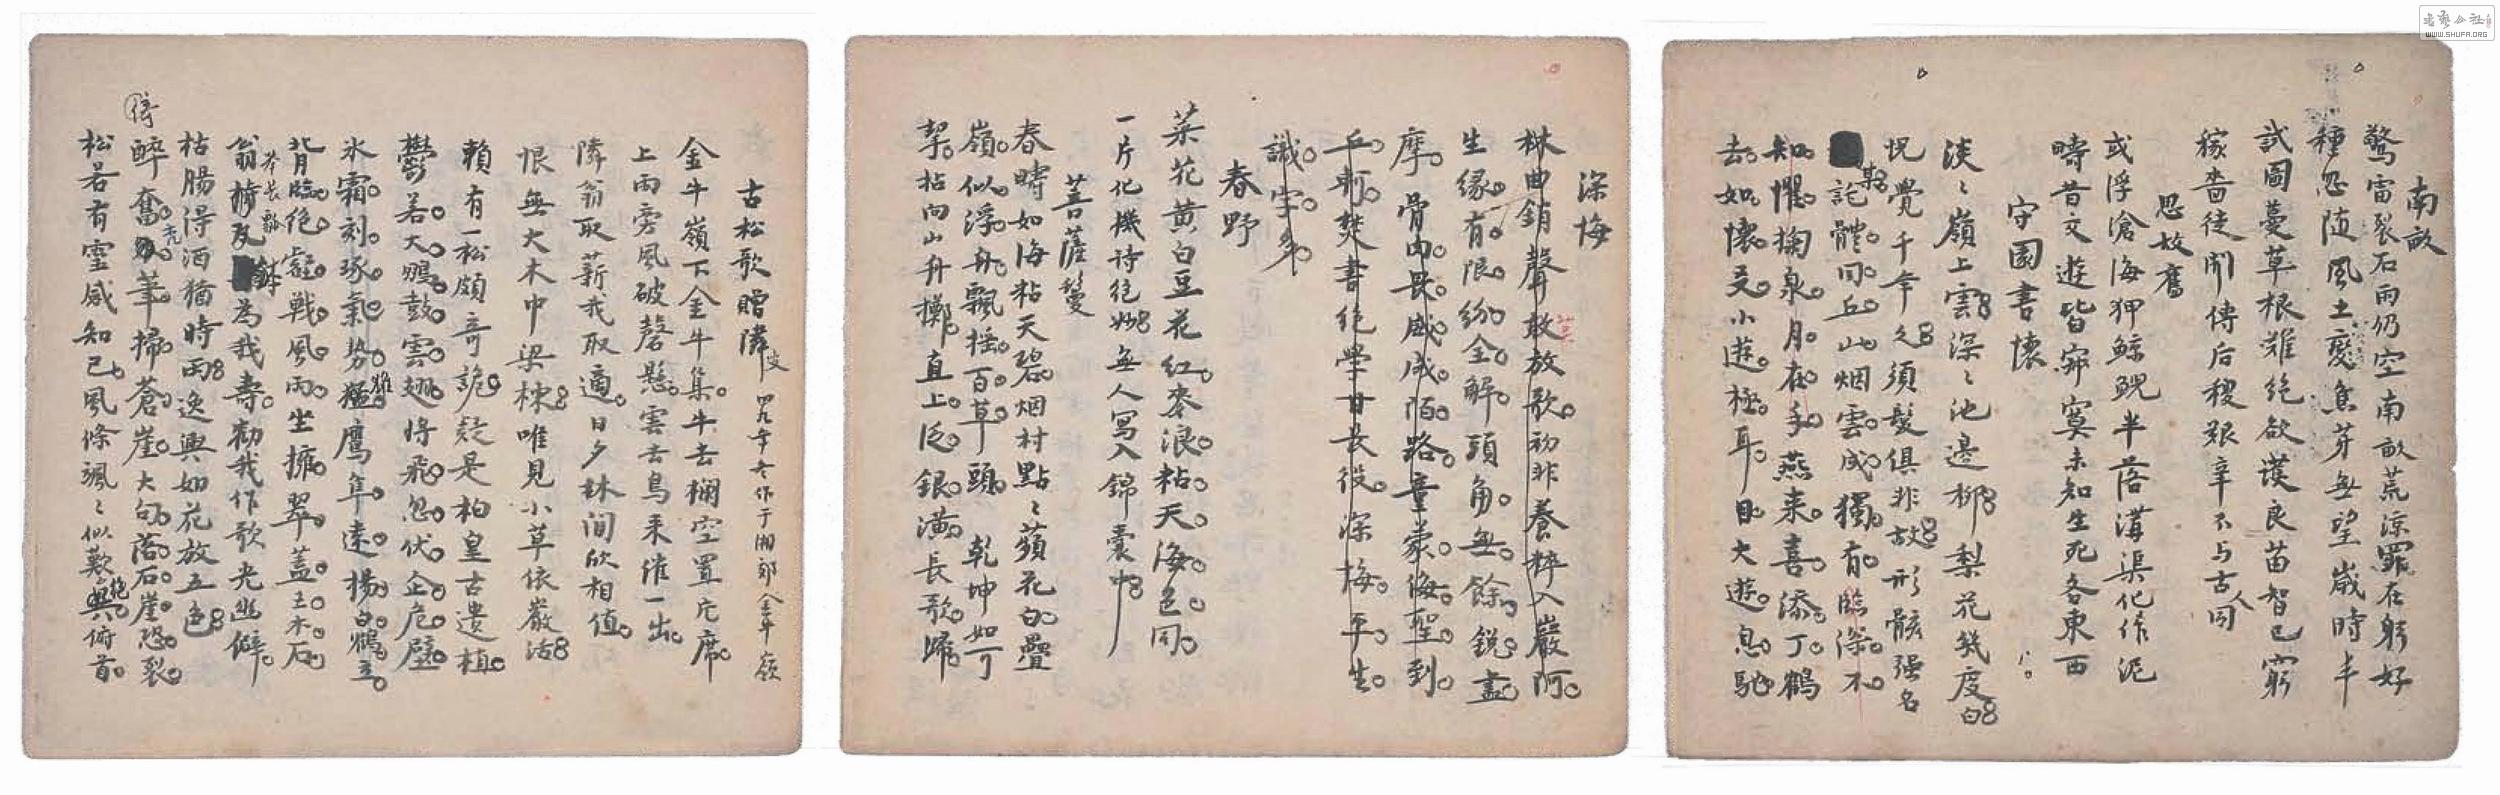 南畝
驚雷裂石雨仍空南畝荒涼罪在躬好
種忽随風土變焦芽無望歲時丰
試圖蔓草根難絕欲護良苗智已窮
稼嗇徒聞傳后稷艱辛不与古人同
思故舊
或浮滄海狎鯨鯢半落溝渠化作泥
疇昔文遊皆寂寞未知生死各東西
守園書懷
淡〻嶺上雲深〻池邊柳梨花幾度白
怳覺千年久須髮俱非故形骸强名
某託體同丘山烟雲成獨有臨深不
知懼掬泉月在手燕来喜添丁鶴
去如懷叟小遊極耳目大遊息馳
深悔
林曲銷聲敢放歌初非養粹入巖阿
生緣有限紛全解頭角無餘銳盡
摩骨肉畏威成陌路童蒙侮聖到
丘軻焚書絕學甘長役深悔平生
識字多
春野
菜花黄白豆花紅麥浪粘天海色同
一片化機诗绝妙無人寫入錦囊中
菩薩鬘
春疇如海粘天碧烟村點〻蘋花白疊
嶺似浮舟飄摇百草頭 乾坤如可
挈拈向山舟擲直上泛銀潢長歌歸
古松歌贈隣叟 四九年冬作于湘鄉金牛嶺
金牛嶺下金牛集牛去欄空置几席
上雨旁風破磬懸雲去鳥来僅一出
隣翁取薪我取適日夕林間欣相值
恨無大木中梁棟唯見小草依巖活
賴有一松頗奇詭疑是柏皇古遺植
鬱若大鵬鼓雲翅将飛忽伏企危壁
氷霜刻琢氣势雄猛鷹隼遠揚白鶴立
背臨絕壑戰風雨坐擁翠蓋玉木石
翁擕友本長瓢鉢為我壽勸我作歌光幽僻
枯腸得酒猶時雨逸興如花放五色
倚醉奮禿筆掃蒼崖大句落石崖恐裂
松若有靈感知己風條颯〻似歎絕興俯首
WWW.SHUFA.ORG